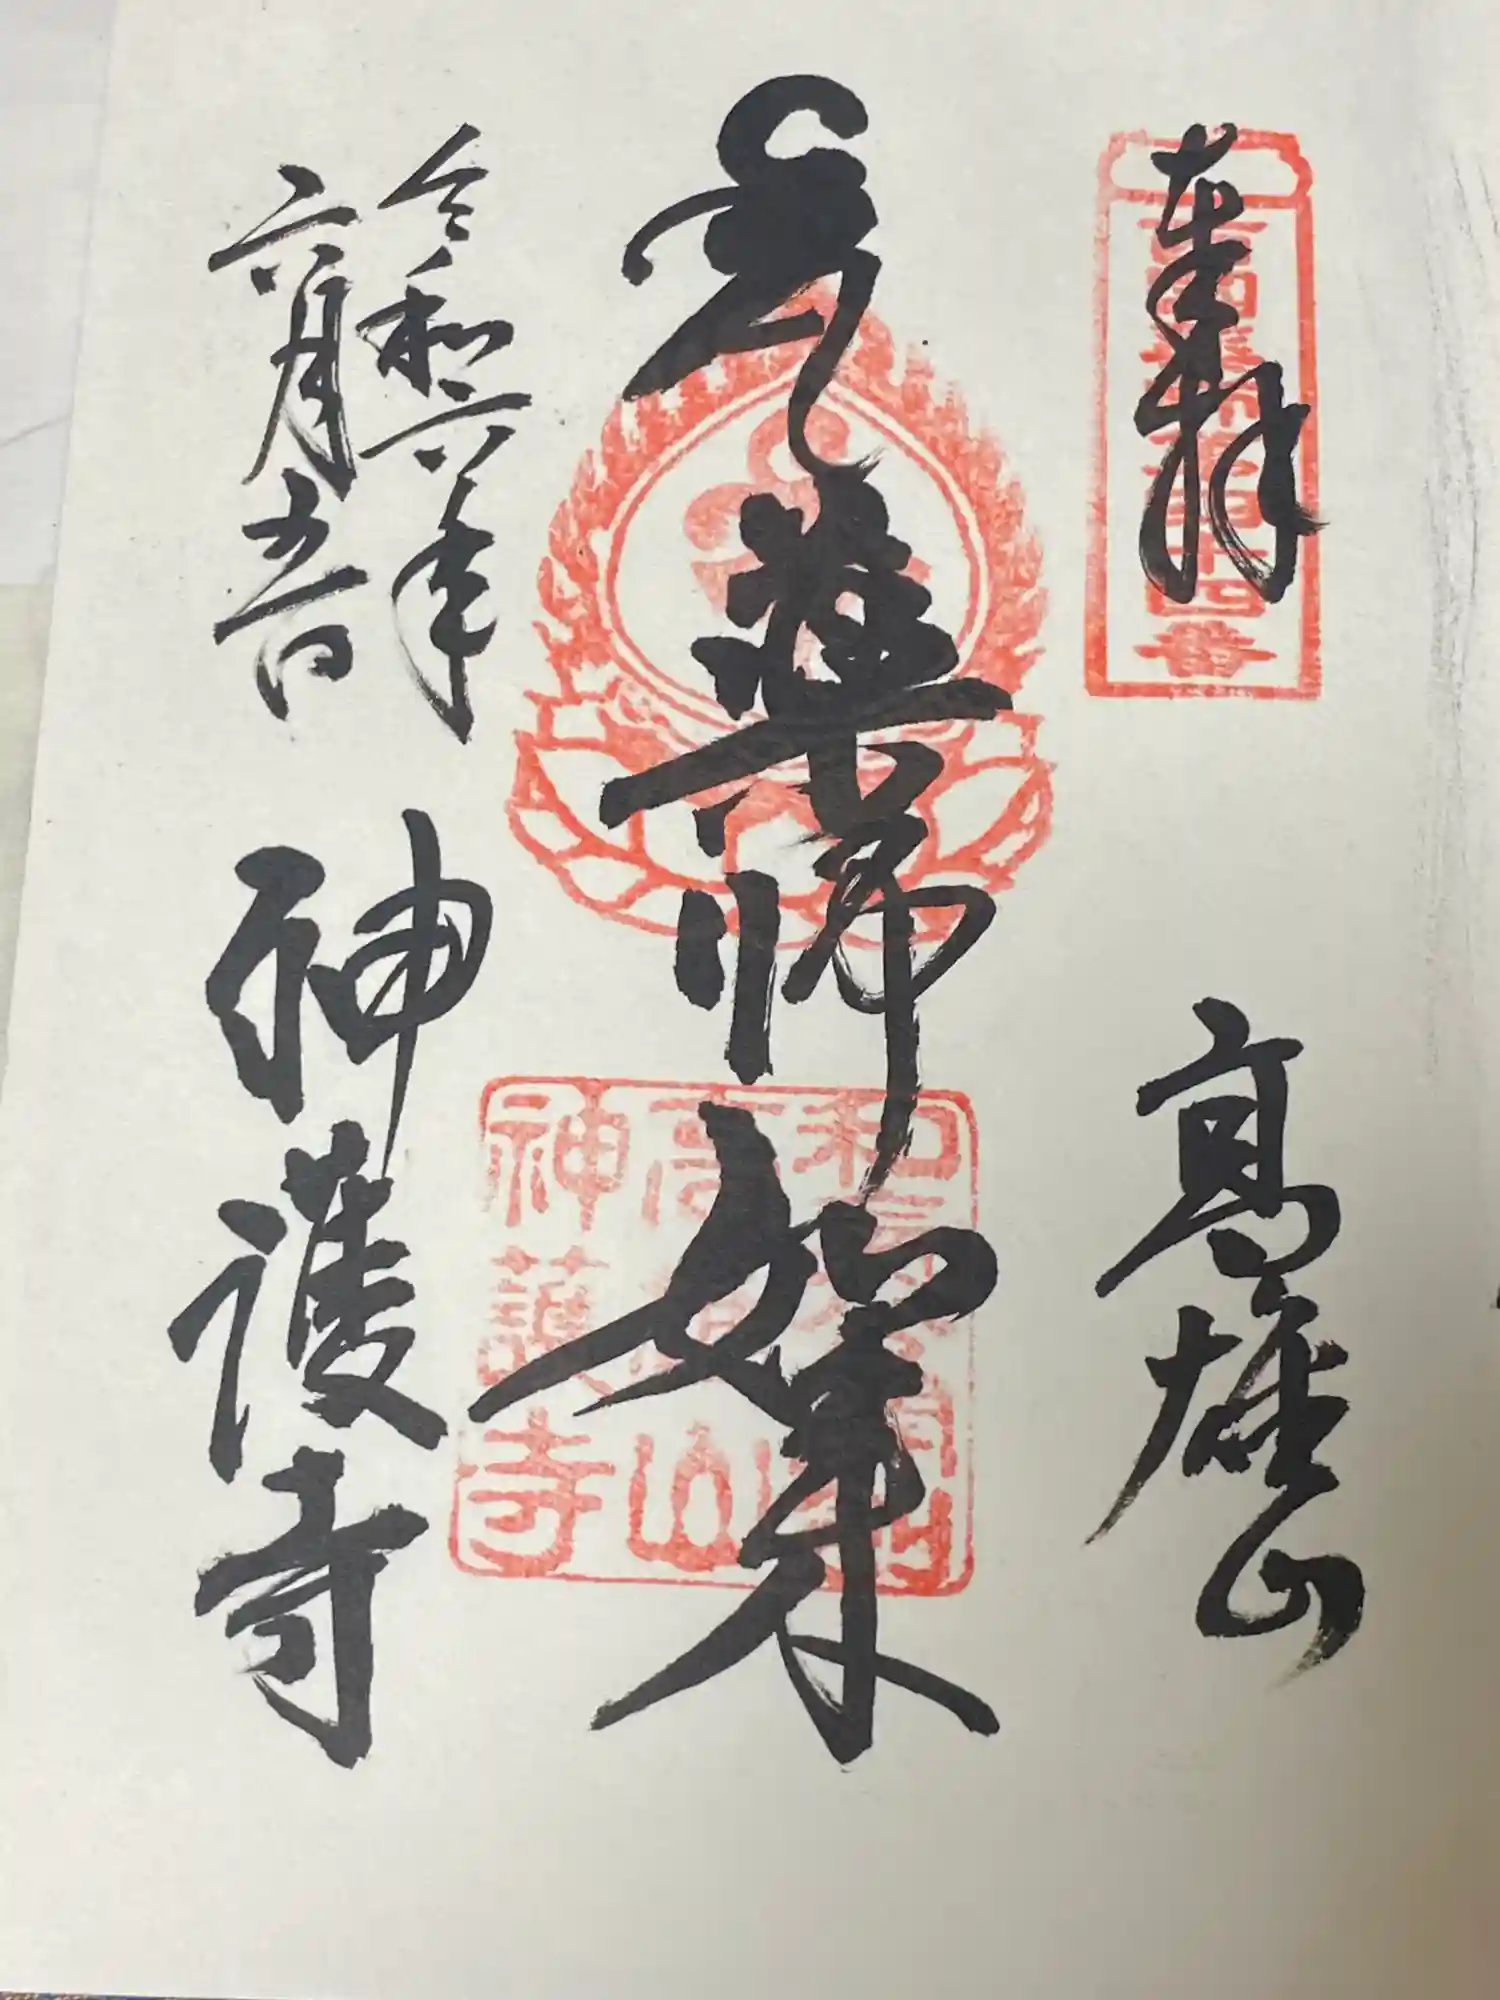 奉拝
西国薬師第四十四番
高雄山
薬師如来
高雄山
神護寺
令和六年
六月五日
神護寺